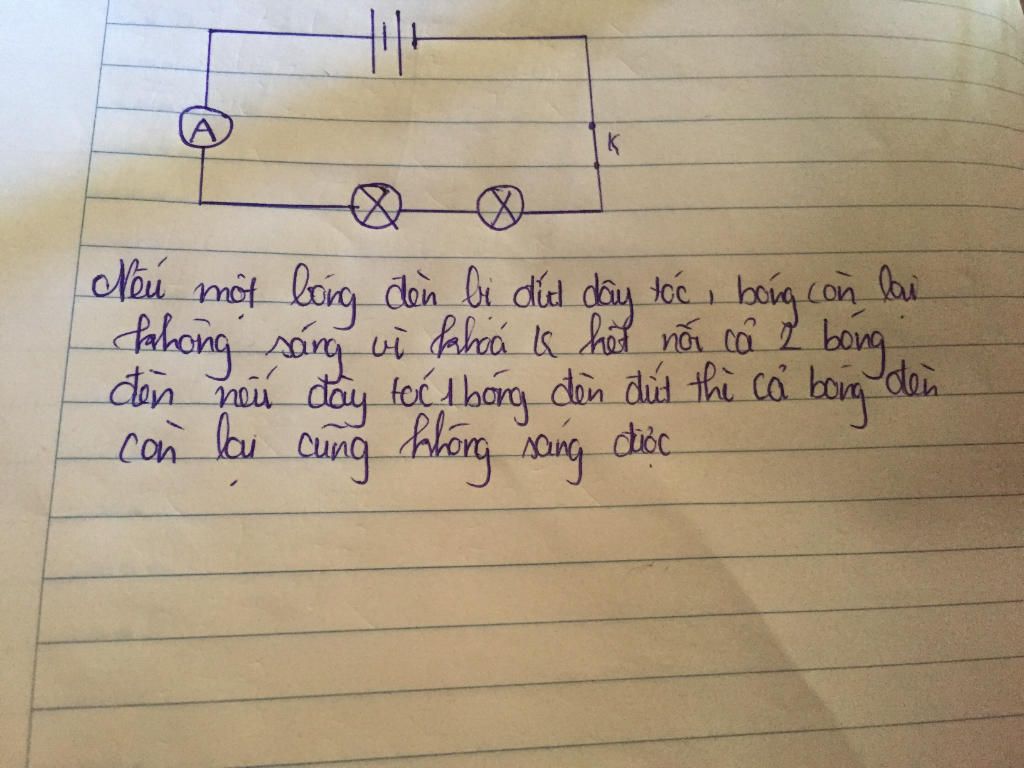 A
K
Nếu một bóng đèn bị đứt dây tóc, bóng còn lại
không sáng vì khoá K kết nối cả 2 bóng
đèn nếu dây tóc 1 bóng đèn đứt thì cả bóng đèn
còn lại cũng không sáng được